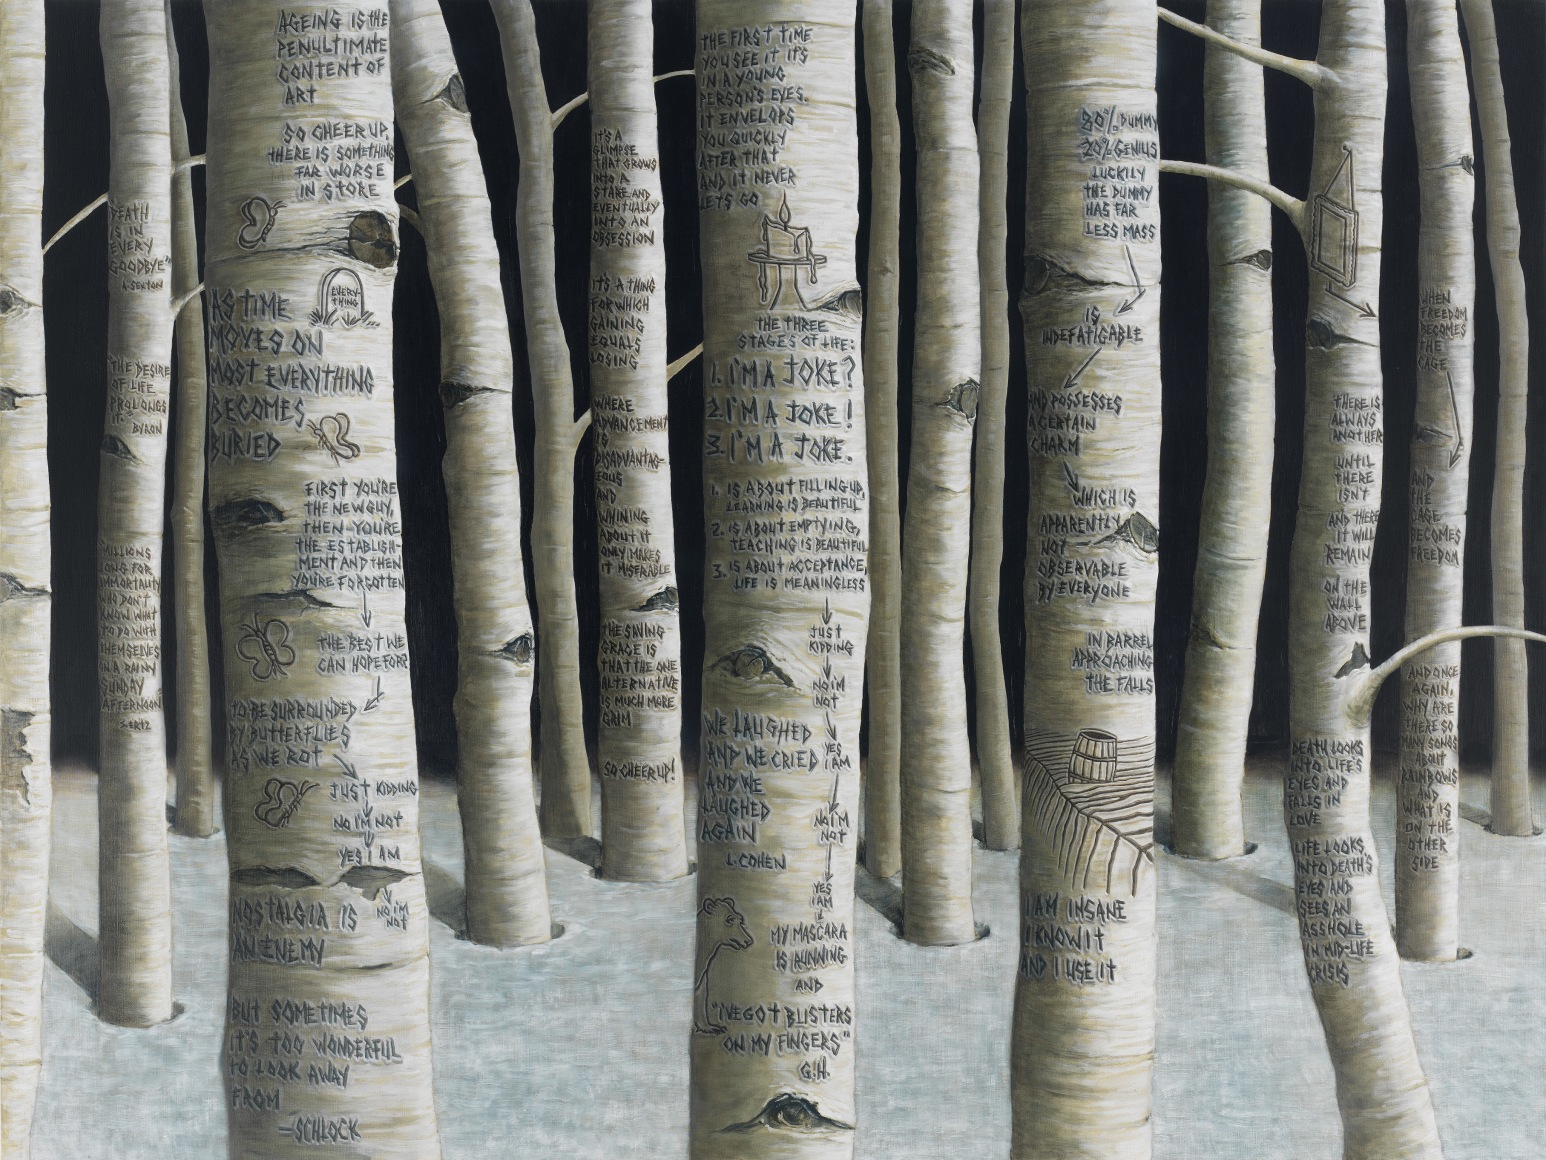 DEATH
IS IN
EVERY
GOODBYE"
A. SEXTON
"THE DESIRE
OF LIFE
PROLONGS
IT" BYRON
MILLIONS
LONG FOR
IMMORTALITY
WHO DON'T
KNOW WHAT
TO DO WITH
THEMSELVES
ON A RAINY
SUNDAY
AFTERNOON"
S. ERTZ
AGEING IS THE
PENULTIMATE
CONTENT OF
ART
SO CHEER UP,
THERE IS SOMETHING
FAR WORSE
IN STORE
EVERY-
THING
AS TIME
MOVES ON
MOST EVERYTHING
BECOMES
BURIED
FIRST YOU'RE
THE NEW GUY,
THEN YOU'RE
THE ESTABLISH
MENT AND THEN
YOU'RE FORGOTTEN
THE BEST WE
CAN HOPE FOR?
TO BE SURROUNDED
BY BUTTERFLIES
AS WE ROT
JUST KIDDING
NO I'M NOT
YES I AM
NO I'M
NOT
NOSTALGIA IS
AN ENEMY
BUT SOMETIMES
IT'S TOO WONDERFUL
TO LOOK AWAY
FROM
—SCHLOCK
IT'S A
GLIMPSE
THAT GROWS
INTO A
STARE AND
EVENTUALLY
IT'S AN
OBSESSION
IT'S A THING
FOR WHICH
GAINING
EQUALS
LOSING
WHERE
ADVANCEMENT
IS
DISADVANTAG-
EOUS
AND
WHINING
ABOUT IT
ONLY MAKES
IT MISERABLE
THE SAVING
GRACE IS
THAT THE ONE
ALTERNATIVE
IS MUCH MORE
GRIM
SO CHEER UP!
THE FIRST TIME
YOU SEE IT IT'S
IN A YOUNG
PERSON'S EYES.
IT ENVELOPS
YOU QUICKLY
AFTER THAT
AND IT NEVER
LETS GO
THE THREE
STAGES OF LIFE:
1. I'M A JOKE?
2. I'M A JOKE!
3. I'M A JOKE.
1. IS ABOUT FILLING UP,
LEARNING IS BEAUTIFUL
2. IS ABOUT EMPTYING,
TEACHING IS BEAUTIFUL
3. IS ABOUT ACCEPTANCE,
LIFE IS MEANINGLESS
JUST
KIDDING
NO I'M
NOT
YES
I AM
NO I'M
NOT
YES
I AM
WE LAUGHED
AND WE CRIED
AND WE
LAUGHED
AGAIN
L. COHEN
MY MASCARA
IS RUNNING
AND
"I'VE GOT BLISTERS
ON MY FINGERS"
G.H.
80% DUMMY
20% GENIUS
LUCKILY
THE DUMMY
HAS FAR
LESS MASS
IS
INDEFATIGABLE
AND POSSESSES
A CERTAIN
CHARM
WHICH IS
APPARENTLY
NOT
OBSERVABLE
BY EVERYONE
IN BARREL
APPROACHING
THE FALLS
I AM INSANE
I KNOW IT
AND I USE IT
THERE IS
ALWAYS
ANOTHER
UNTIL
THERE
ISN'T
AND THERE
IT WILL
REMAIN
ON THE
WALL
ABOVE
DEATH LOOKS
INTO LIFE'S
EYES AND
FALLS IN
LOVE
LIFE LOOKS
INTO DEATH'S
EYES AND
SEES AN
ASSHOLE
IN MID-LIFE
CRISIS
WHEN
FREEDOM
BECOMES
THE
CAGE
AND
THE
CAGE
BECOMES
FREEDOM
AND ONCE
AGAIN,
WHY ARE
THERE SO
MANY SONGS
ABOUT
RAINBOWS
AND
WHAT IS
ON THE
OTHER
SIDE